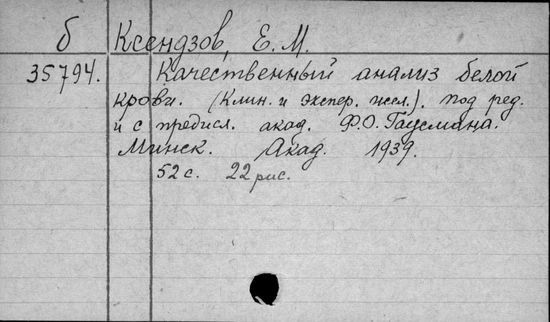 б Ксендзов, Е. М.
35794. Качественный анализ белой
крови. (Клин. и экспер. иссл.). под ред.
и с предисл. акад. Ф.О. Гаусмана.
Минск. Акад. 1939.
52 с. 22 рис.